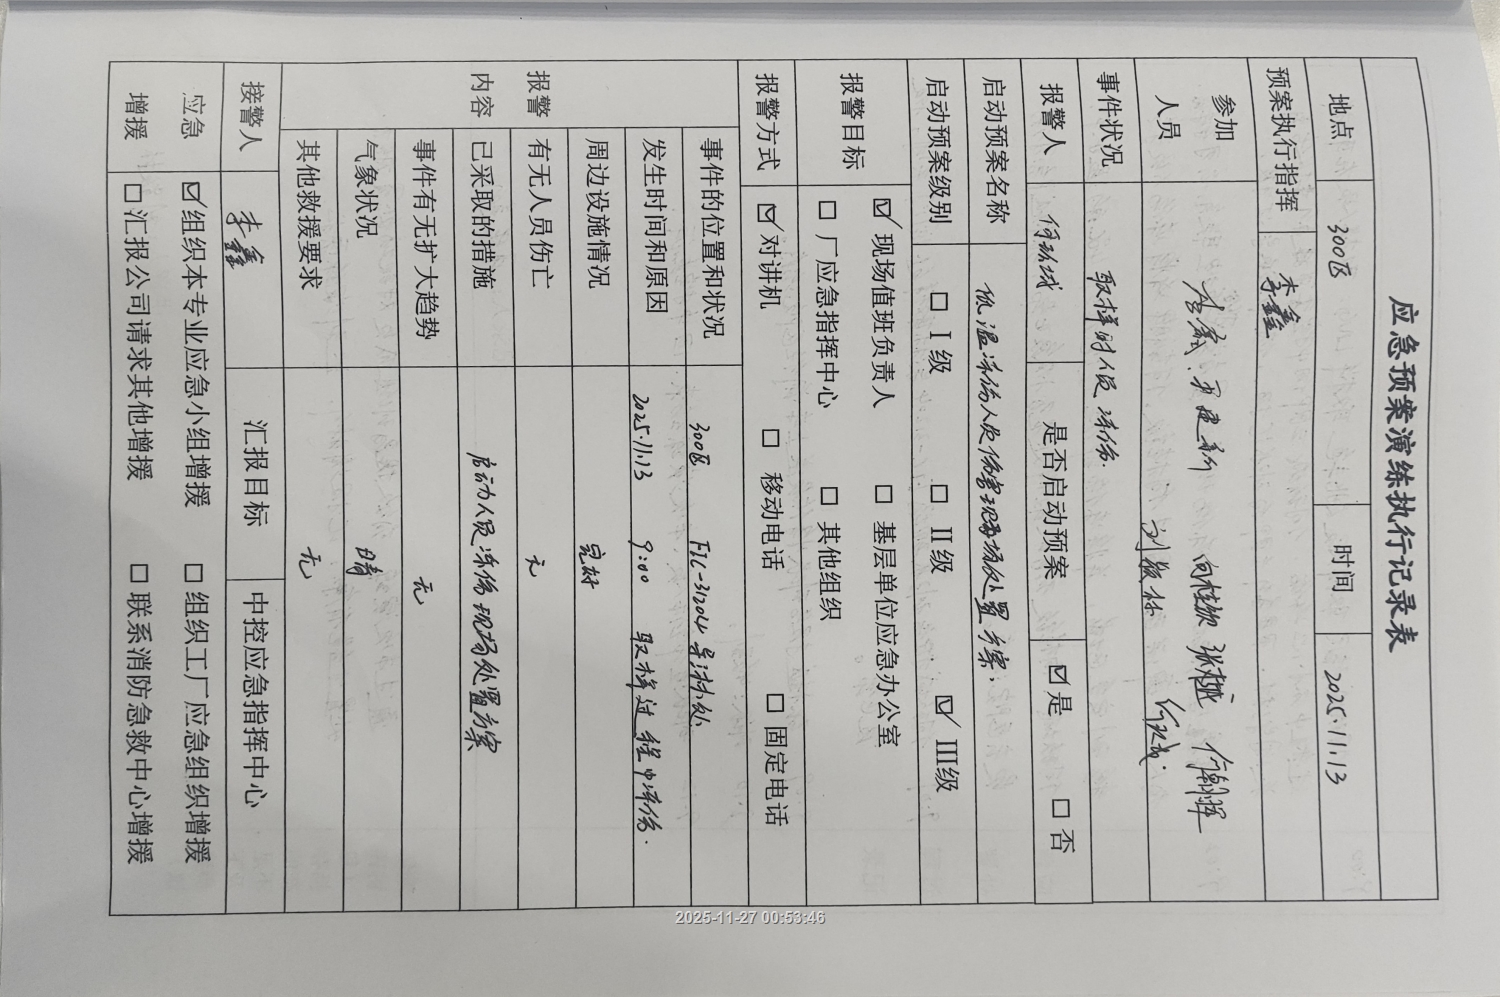 应急预案演练执行记录表
地点 300区 时间 2025.11.13
预案执行指挥 李鑫
参加
人员
事件状况 取样时人员冻伤.
报警人 是否启动预案 ☑是 □否
启动预案名称 低温冻伤人员伤害现场处置方案.
启动预案级别 □ Ⅰ级 □ Ⅱ级 ☑ Ⅲ级
报警目标 ☑ 现场值班负责人 □ 基层单位应急办公室
□ 厂应急指挥中心 □ 其他组织
报警方式 ☑ 对讲机 □ 移动电话 □ 固定电话
报警
内容
事件的位置和状况 300区 FIC-31204导淋处
发生时间和原因 2025.11.13 9:00 取样过程中冻伤.
周边设施情况 完好
有无人员伤亡 无
已采取的措施 启动人员冻伤现场处置方案
事件有无扩大趋势 无
气象状况 晴
其他救援要求 无
接警人 李鑫 汇报目标 中控应急指挥中心
应急
增援
☑组织本专业应急小组增援 □ 组织工厂应急组织增援
□汇报公司请求其他增援 □ 联系消防急救中心增援
2025-11-27 00:53:46